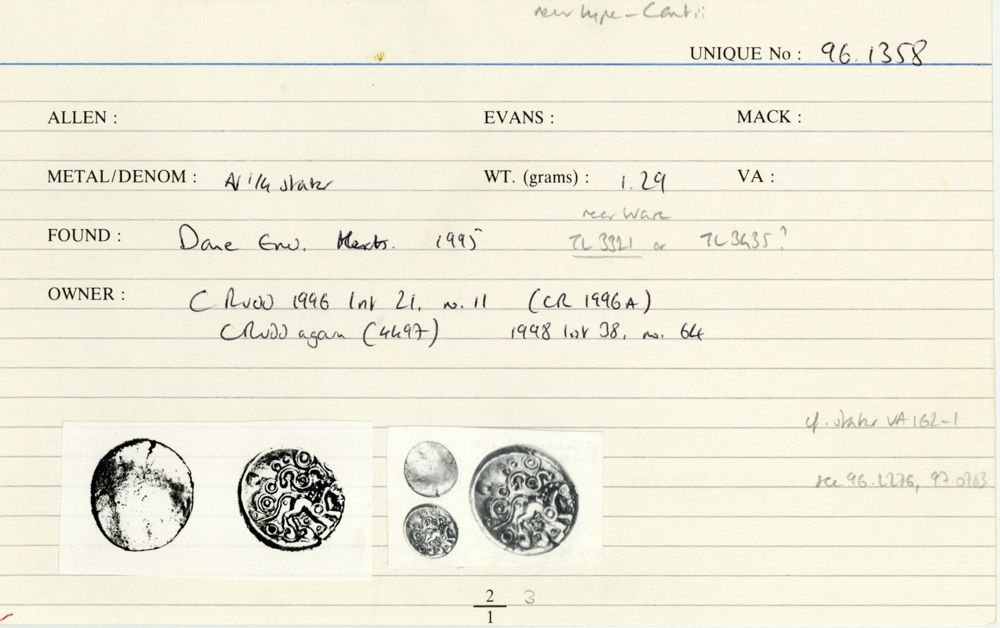 new type - Cantii
UNIQUE No : 96.1358
ALLEN : EVANS : MACK :
METAL/DENOM : AV 1/4 stater WT. (grams) : 1.29 VA :
near Ware
FOUND : Dane End. Herts. 1995 TL 3321 or TL 3435?
OWNER : C RUDD 1996 list 21, no. 11 (CR 1996A)
C RUDD again (4497) 1998 list 38, no. 64
cf. stater VA 162-1
see 96.2276, 97.0783
2 3
1